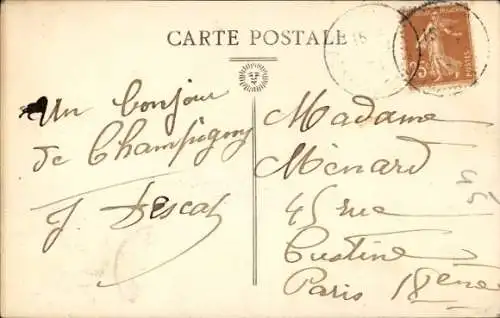 CARTE POSTALE
Un bonjour
de Champigny
Madame
Ménard
45 rue
Custine
Paris 18ème
35
POSTES
45